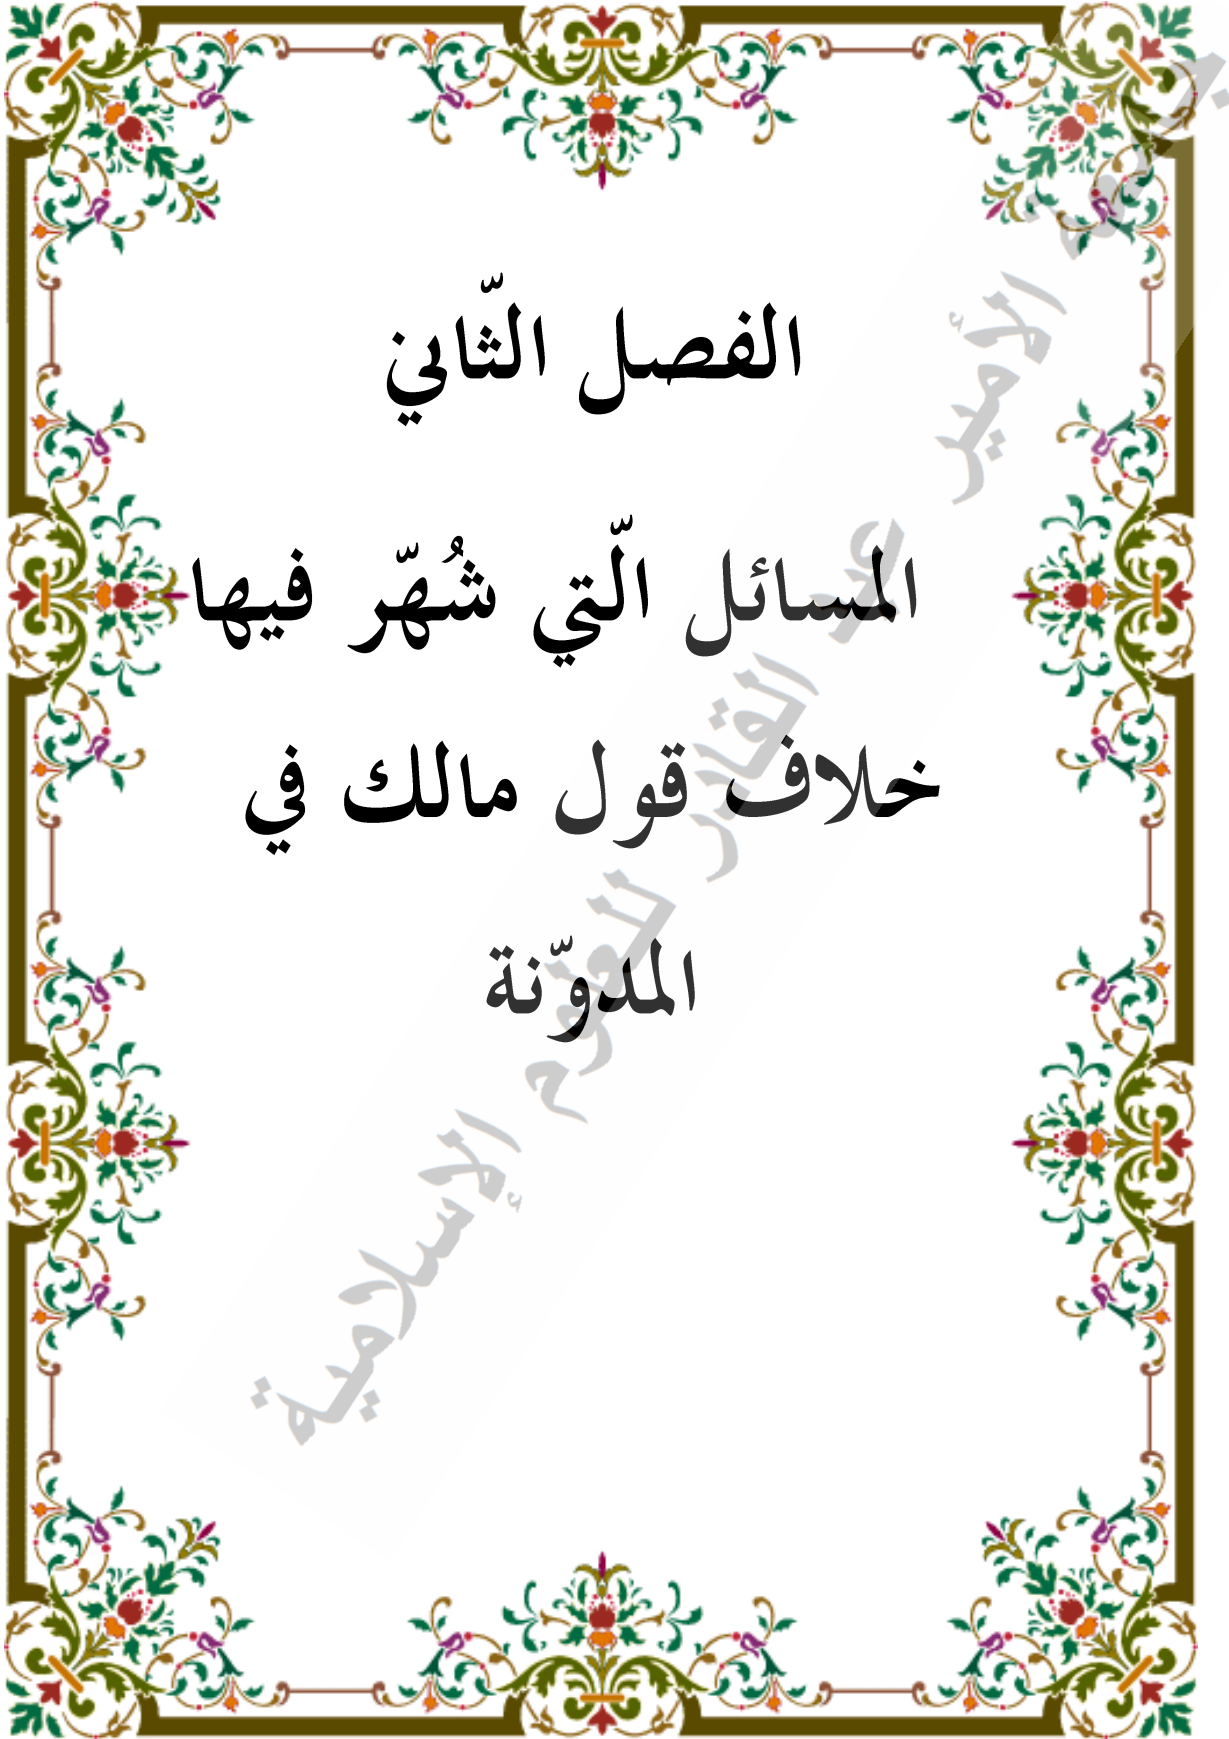 الفصل الثّاني
المسائل الّتي شُهّر فيها
خلاف قول مالك في
المدوّنة
جامعة الأمير عبد القادر للعلوم الإسلامية